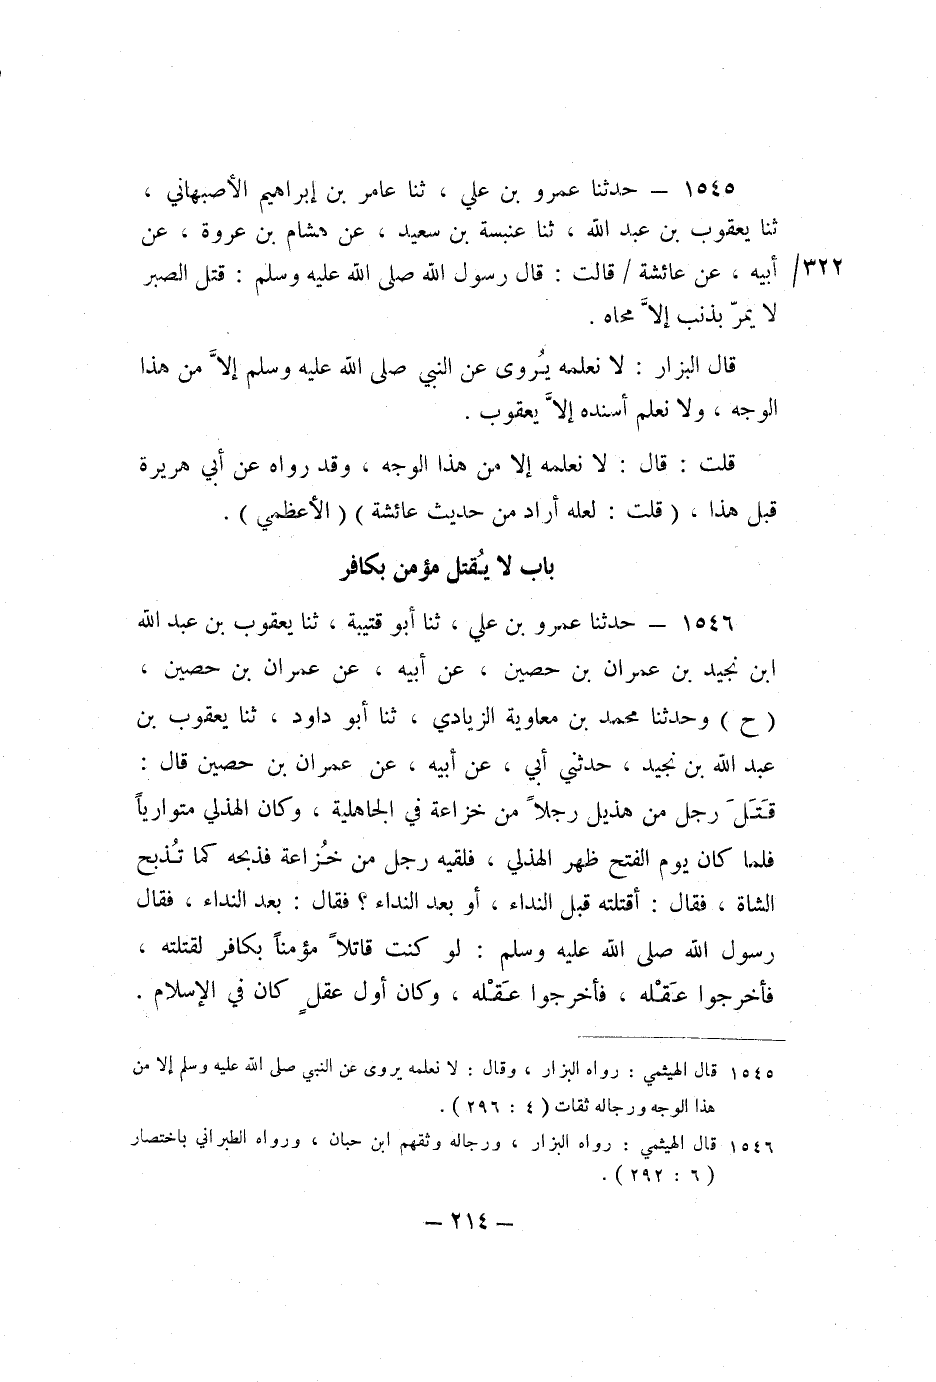 ١٥٤٥ — حدثنا عمرو بن علي ، ثنا عامر بن إبراهيم الأصبهاني ،
ثنا يعقوب بن عبد الله ، ثنا عنبسة بن سعيد ، عن هشام بن عروة ، عن
٣٢٢/ أبيه ، عن عائشة / قالت : قال رسول الله صلى الله عليه وسلم : قتل الصبر
لا يمرّ بذنب إلاَّ محاه .
قال البزار : لا نعلمه يُروى عن النبي صلى الله عليه وسلم إلاَّ من هذا
الوجه ، ولا نعلم أسنده إلاَّ يعقوب .
قلت : قال : لا نعلمه إلا من هذا الوجه ، وقد رواه عن أبي هريرة
قبل هذا ، ( قلت : لعله أراد من حديث عائشة ) ( الأعظمي ) .
باب لا يُقتل مؤمن بكافر
١٥٤٦ — حدثنا عمرو بن علي ، ثنا أبو قتيبة ، ثنا يعقوب بن عبد الله
ابن نجيد بن عمران بن حصين ، عن أبيه ، عن عمران بن حصين ،
( ح ) وحدثنا محمد بن معاوية الزيادي ، ثنا أبو داود ، ثنا يعقوب بن
عبد الله بن نجيد ، حدثني أبي ، عن أبيه ، عن عمران بن حصين قال :
قَتَلَ رجل من هذيل رجلاً من خزاعة في الجاهلية ، وكان الهذلي متوارياً
فلما كان يوم الفتح ظهر الهذلي ، فلقيه رجل من خُزاعة فذبحه كما تُذبح
الشاة ، فقال : أقتلته قبل النداء ، أو بعد النداء ؟ فقال : بعد النداء ، فقال
رسول الله صلى الله عليه وسلم : لو كنت قاتلاً مؤمناً بكافر لقتلته ،
فأخرجوا عَقْله ، فأخرجوا عَقْله ، وكان أول عقلٍ كان في الإسلام .
١٥٤٥ قال الهيثمي : رواه البزار ، وقال : لا نعلمه يروى عن النبي صلى الله عليه وسلم إلا من
هذا الوجه ورجاله ثقات ( ٤ : ٢٩٦ ) .
١٥٤٦ قال الهيثمي : رواه البزار ، ورجاله وثقهم ابن حبان ، ورواه الطبراني باختصار
( ٦ : ٢٩٢ ) .
— ٢١٤ —